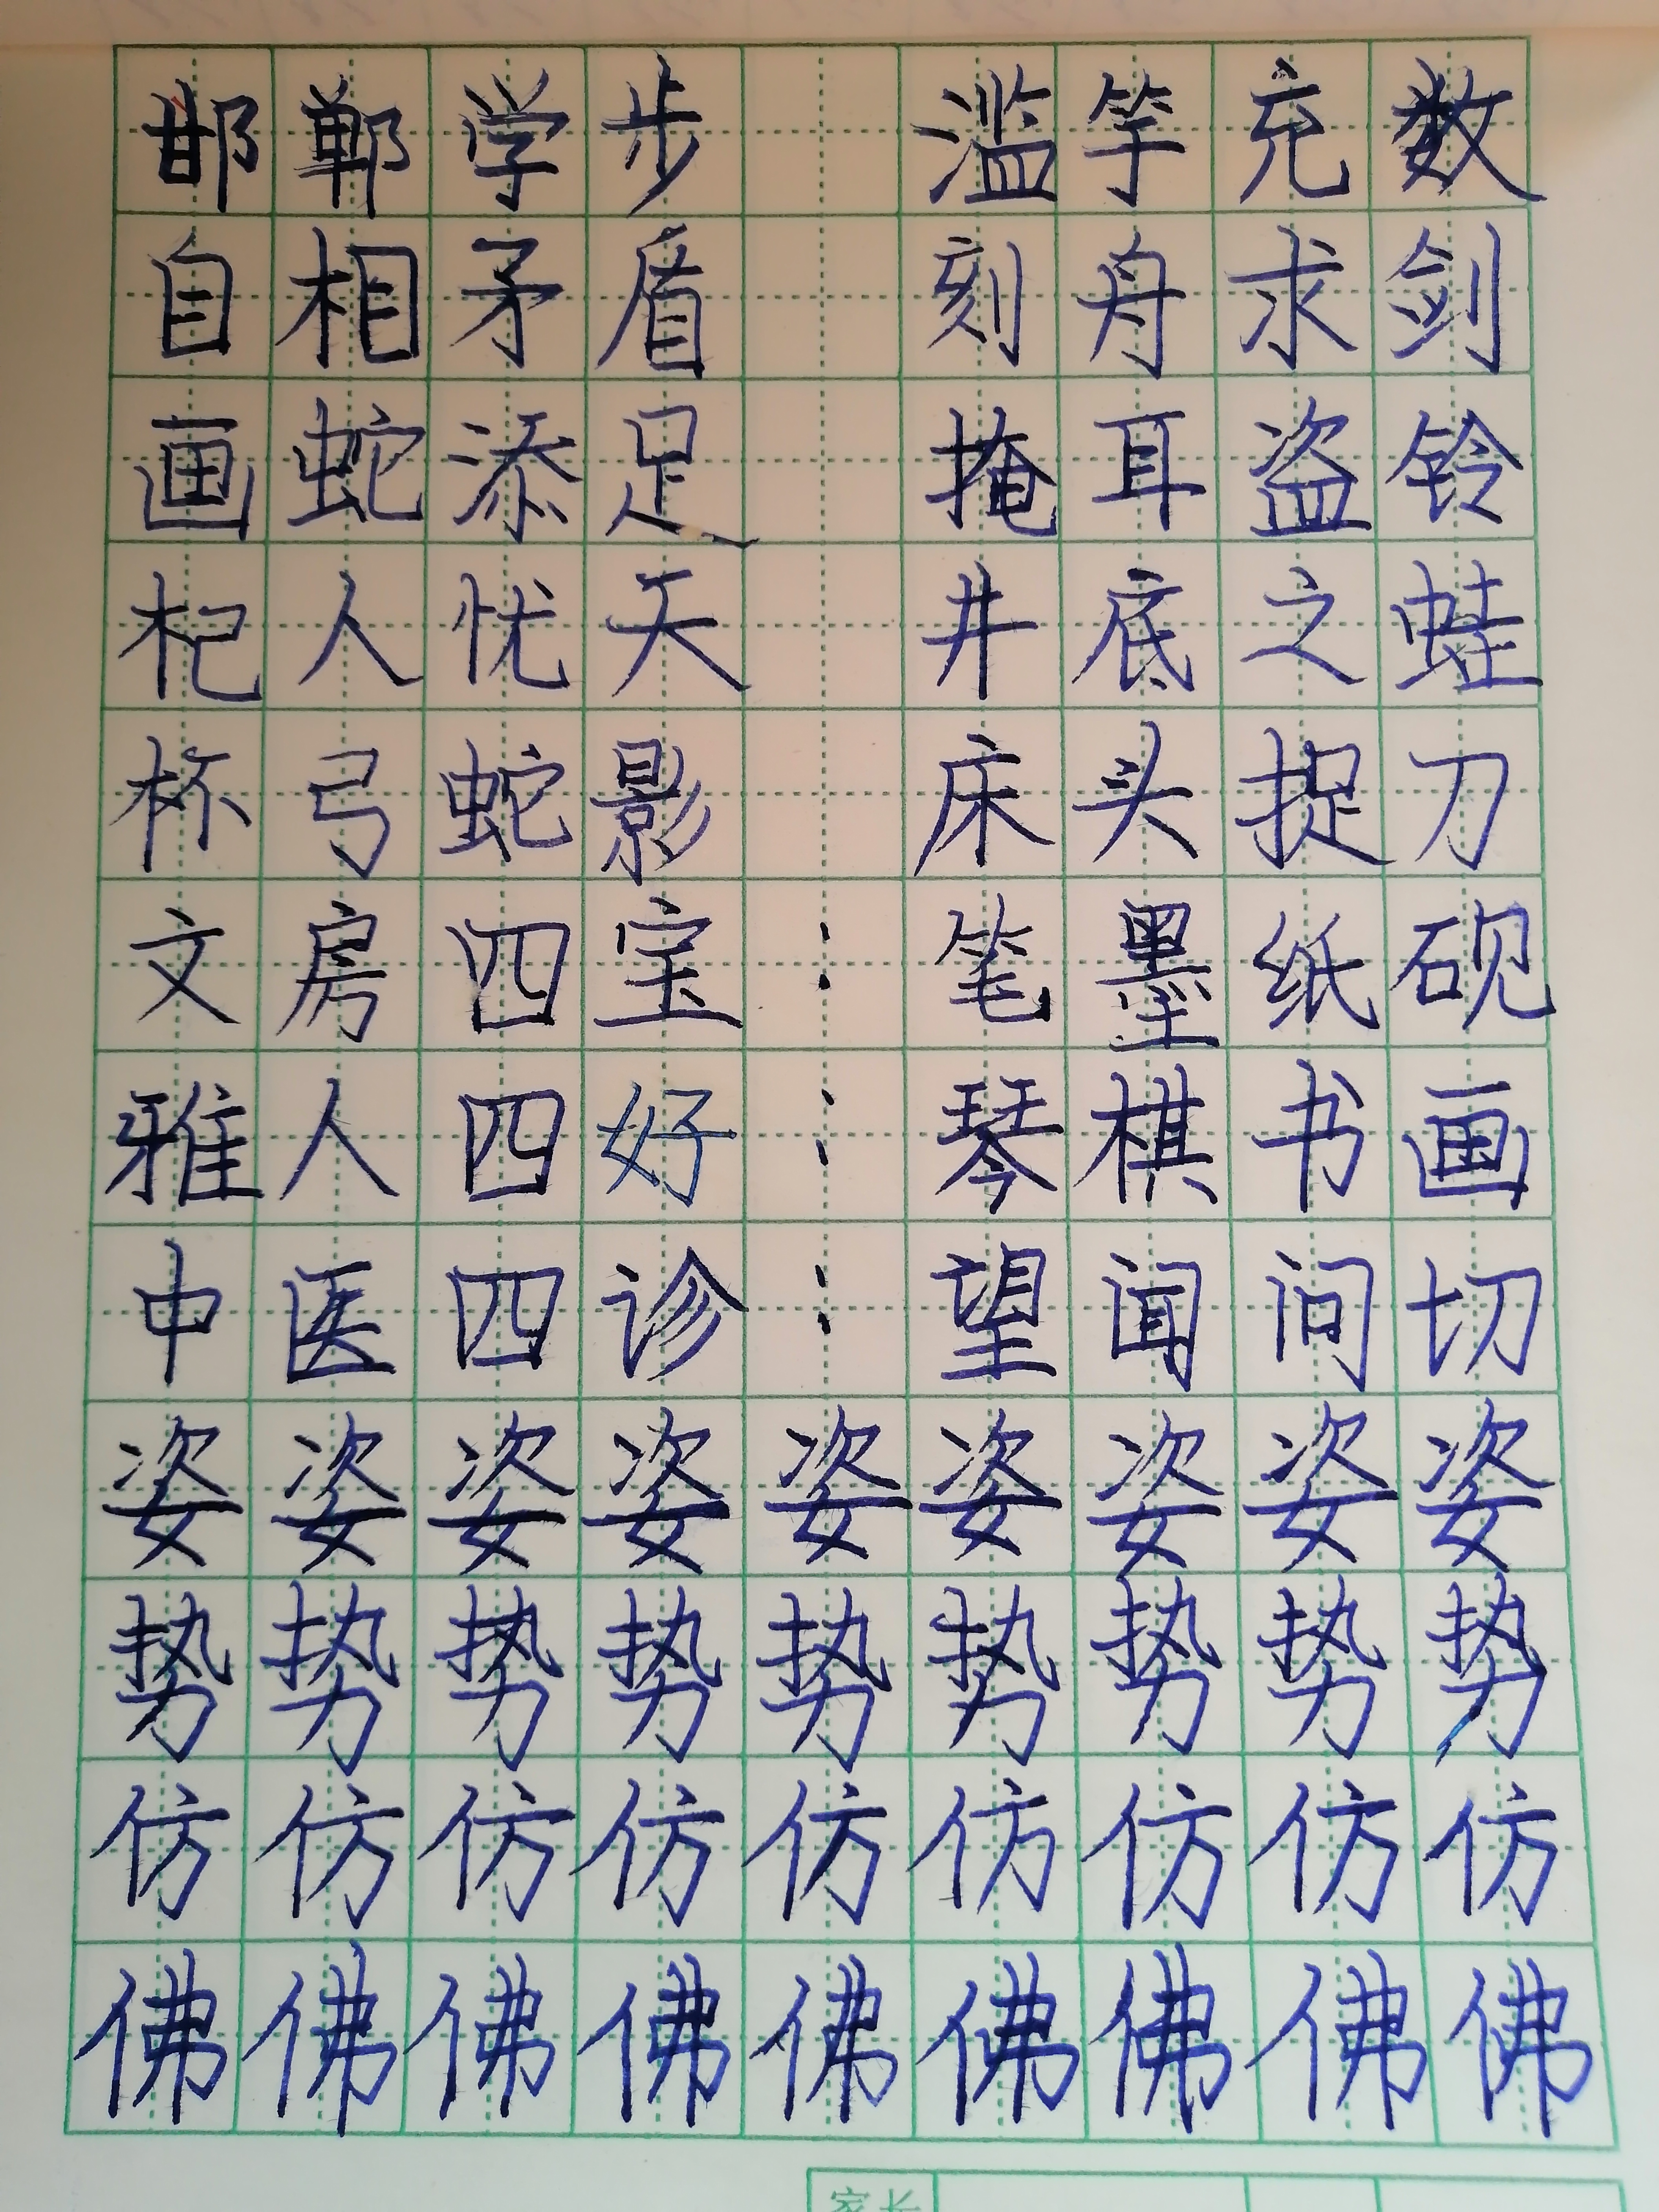 邯郸学步 滥竽充数
自相矛盾 刻舟求剑
画蛇添足 掩耳盗铃
杞人忧天 井底之蛙
杯弓蛇影 床头捉刀
文房四宝:笔墨纸砚
雅人四好:琴棋书画
中医四诊:望闻问切
姿姿姿姿姿姿姿姿姿
势势势势势势势势势
仿仿仿仿仿仿仿仿仿
佛佛佛佛佛佛佛佛佛
家长